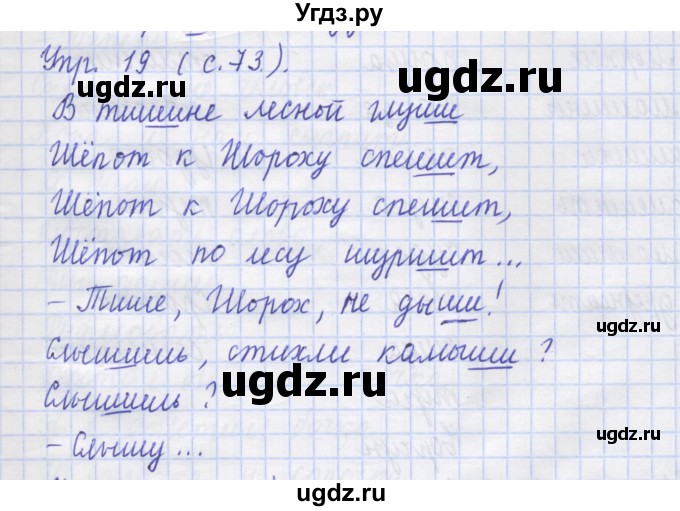 Угдз.ру
Упр. 19 (с.73).
ugdz.ru
В тишине лесной глуши
Шёпот к Шороху спешит,
ugdz.ru
Шёпот к Шороху спешит,
Шёпот по лесу шуршит...
ugdz.ru
– Тише, Шорох, не дыши!
ugdz.ru
Слышишь, стихли камыши?
ugdz.ru
Слышишь?
ugdz.ru
– Слышу...
ugdz.ru